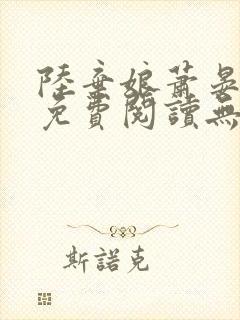 陸棄娘蕭晏
免費閱讀無
斯諾克